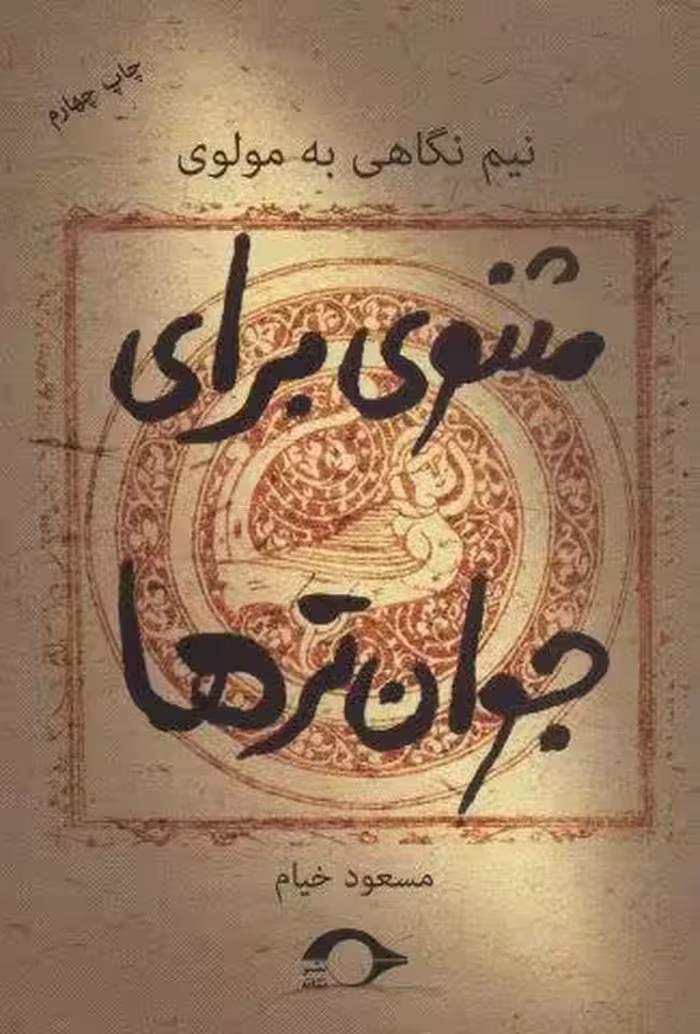 چاپ چهارم
نیم نگاهی به مولوی
مثنوی برای
جوان‌ترها
مسعود خیام
نشر